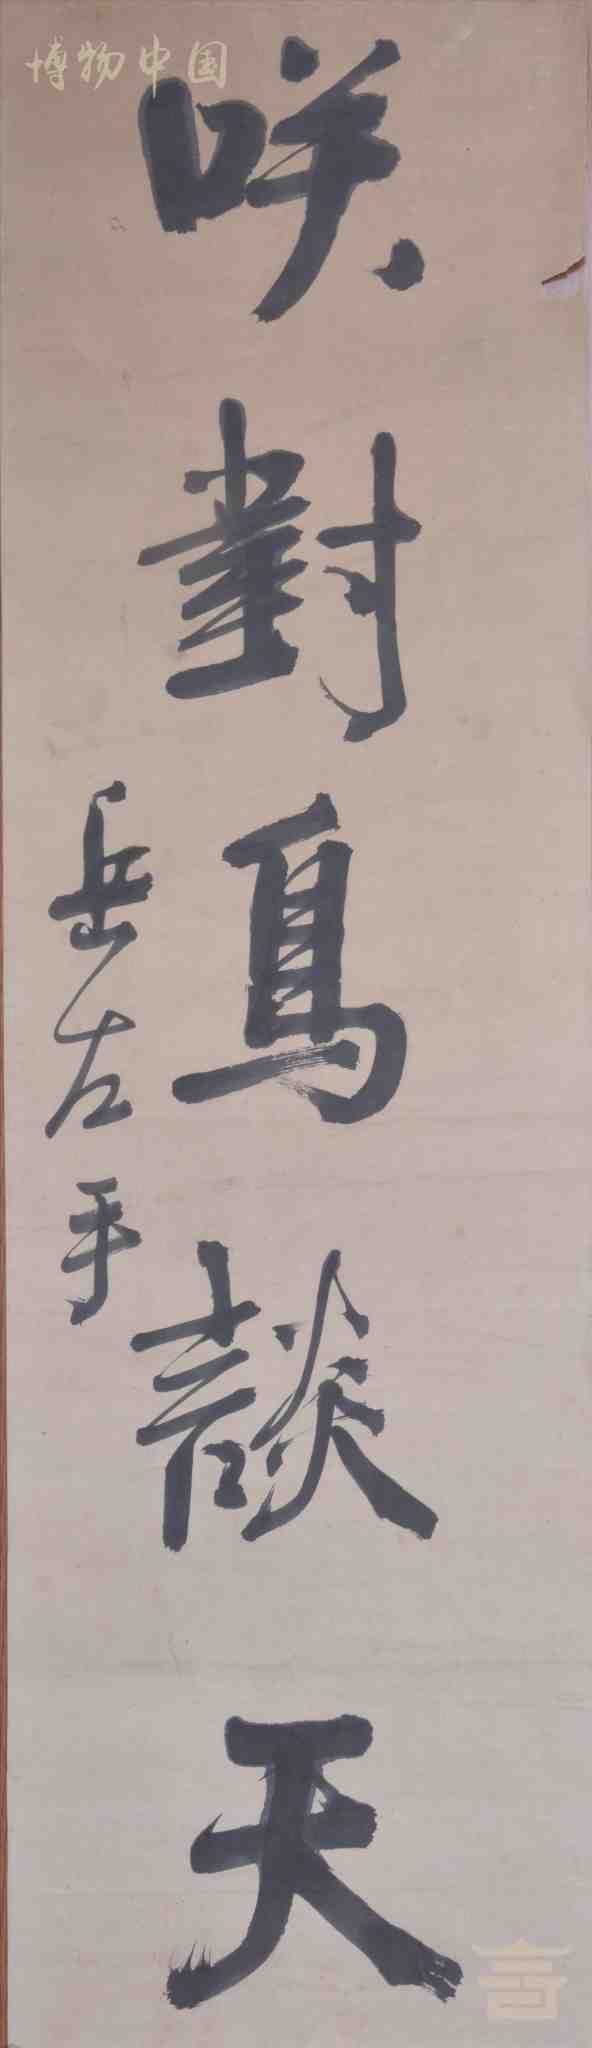 博物中国
咲對鳥談天
岳左手